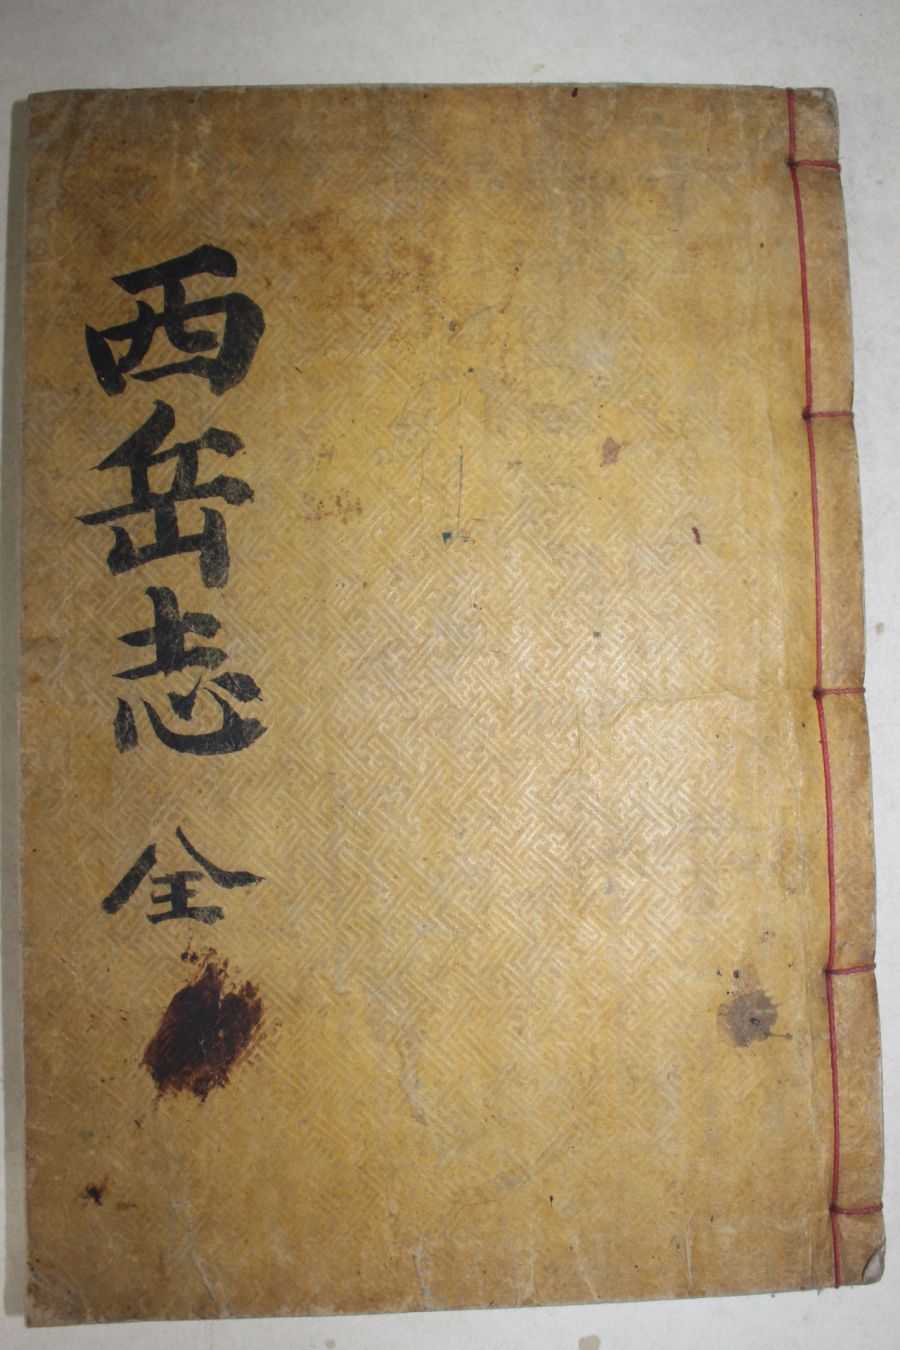 西岳志 全